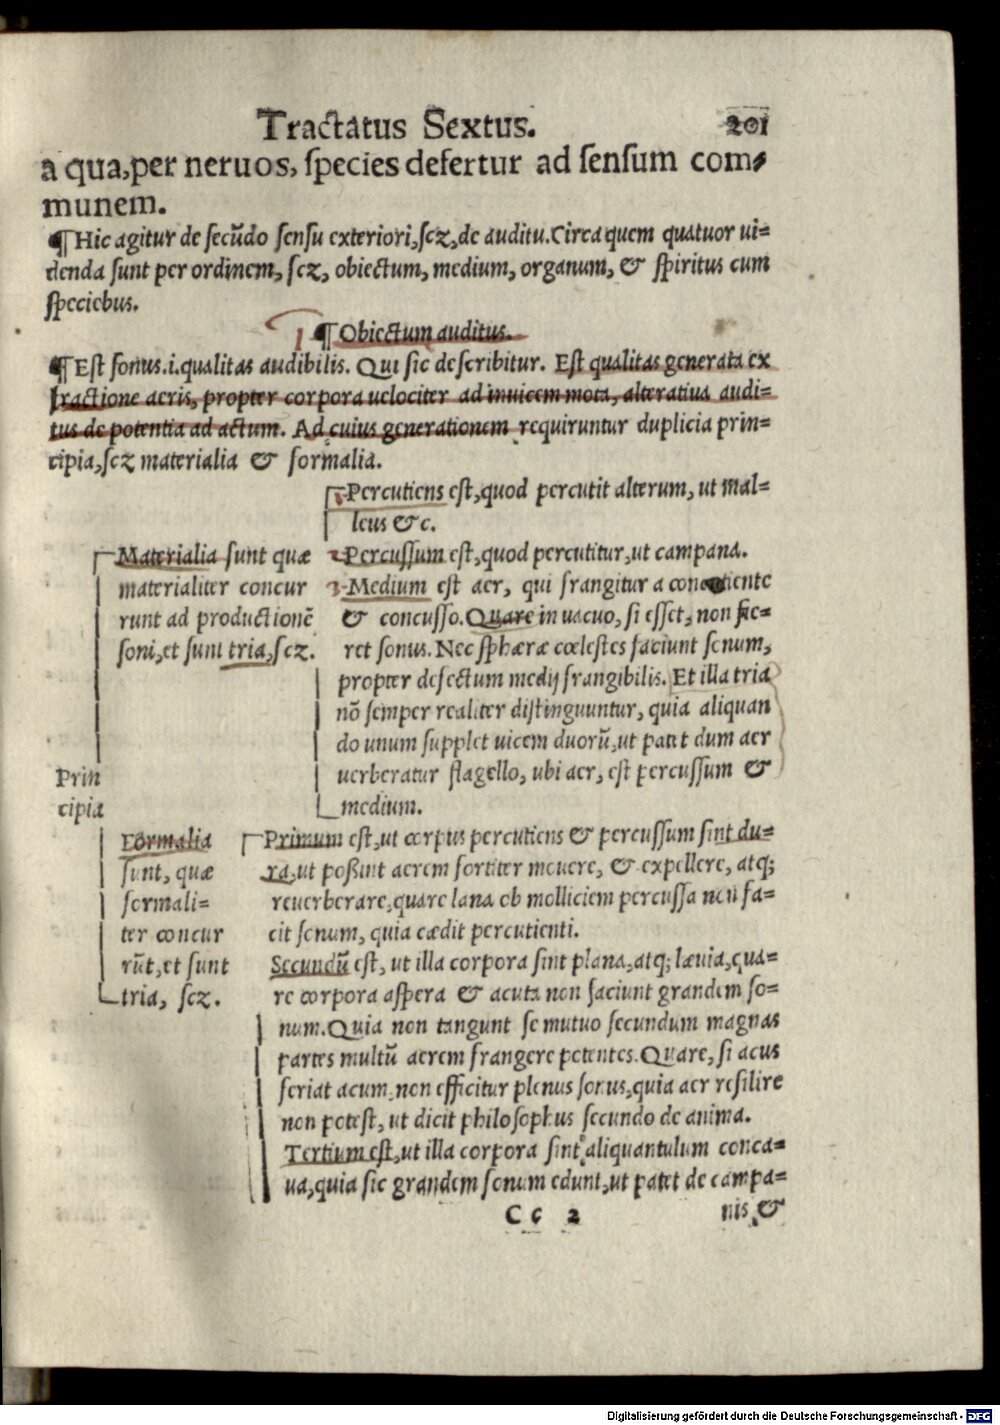 Tractatus Sextus. 201
a qua, per neruos, ſpecies defertur ad ſenſum com-
munem.
¶ Hic agitur de ſecūdo ſenſu exteriori, ſcz, de auditu. Circa quem quatuor ui=
denda ſunt per ordinem, ſcz, obiectum, medium, organum, & ſpiritus cum
ſpeciebus.
1 ¶ Obiectum auditus.
¶ Eſt ſonus.i.qualitas audibilis. Qui ſic deſcribitur. Eſt qualitas generata ex
fractione aeris, propter corpora uelociter ad inuicem mota, alteratiua audi=
tus de potentia ad actum. Ad cuius generationem requiruntur duplicia prin=
cipia, ſcz materialia & formalia.
Percutiens eſt, quod percutit alterum, ut mal=
leus &c.
Materialia ſunt quæ
materialiter concur
runt ad productionē
ſoni, et ſunt tria, ſcz.
2 Percuſſum eſt, quod percutitur, ut campana.
3 Medium eſt aer, qui frangitur a concutiente
& concuſſo. Quare in uacuo, ſi eſſet, non fie=
ret ſonus. Nec ſphæræ cœleſtes faciunt ſonum,
propter defectum medij frangibilis. Et illa tria
nō ſemper realiter diſtinguuntur, quia aliquan
do unum ſupplet uicem duorū, ut patet dum aer
uerberatur flagello, ubi aer, eſt percuſſum &
medium.
Prin
cipia
Formalia
ſunt, quæ
formali=
ter concur
rūt, et ſunt
tria, ſcz.
Primum eſt, ut corpus percutiens & percuſſum ſint du=
ra, ut poßint aerem fortiter mouere, & expellere, atq;
reuerberare, quare lana ob molliciem percuſſa non fa=
cit ſonum, quia cædit percutienti.
Secundū eſt, ut illa corpora ſint plana, atq; læuia, qua=
re corpora aſpera & acuta non faciunt grandem ſo=
num. Quia non tangunt ſe mutuo ſecundum magnas
partes multū aerem frangere potentes. Quare, ſi acus
feriat acum, non efficitur plenus ſonus, quia aer reſilire
non poteſt, ut dicit philoſophus ſecundo de anima.
Tertium eſt, ut illa corpora ſint aliquantulum conca=
ua, quia ſic grandem ſonum edunt, ut patet de campa=
Cc 2 nis &
Digitalisierung gefördert durch die Deutsche Forschungsgemeinschaft - DFG